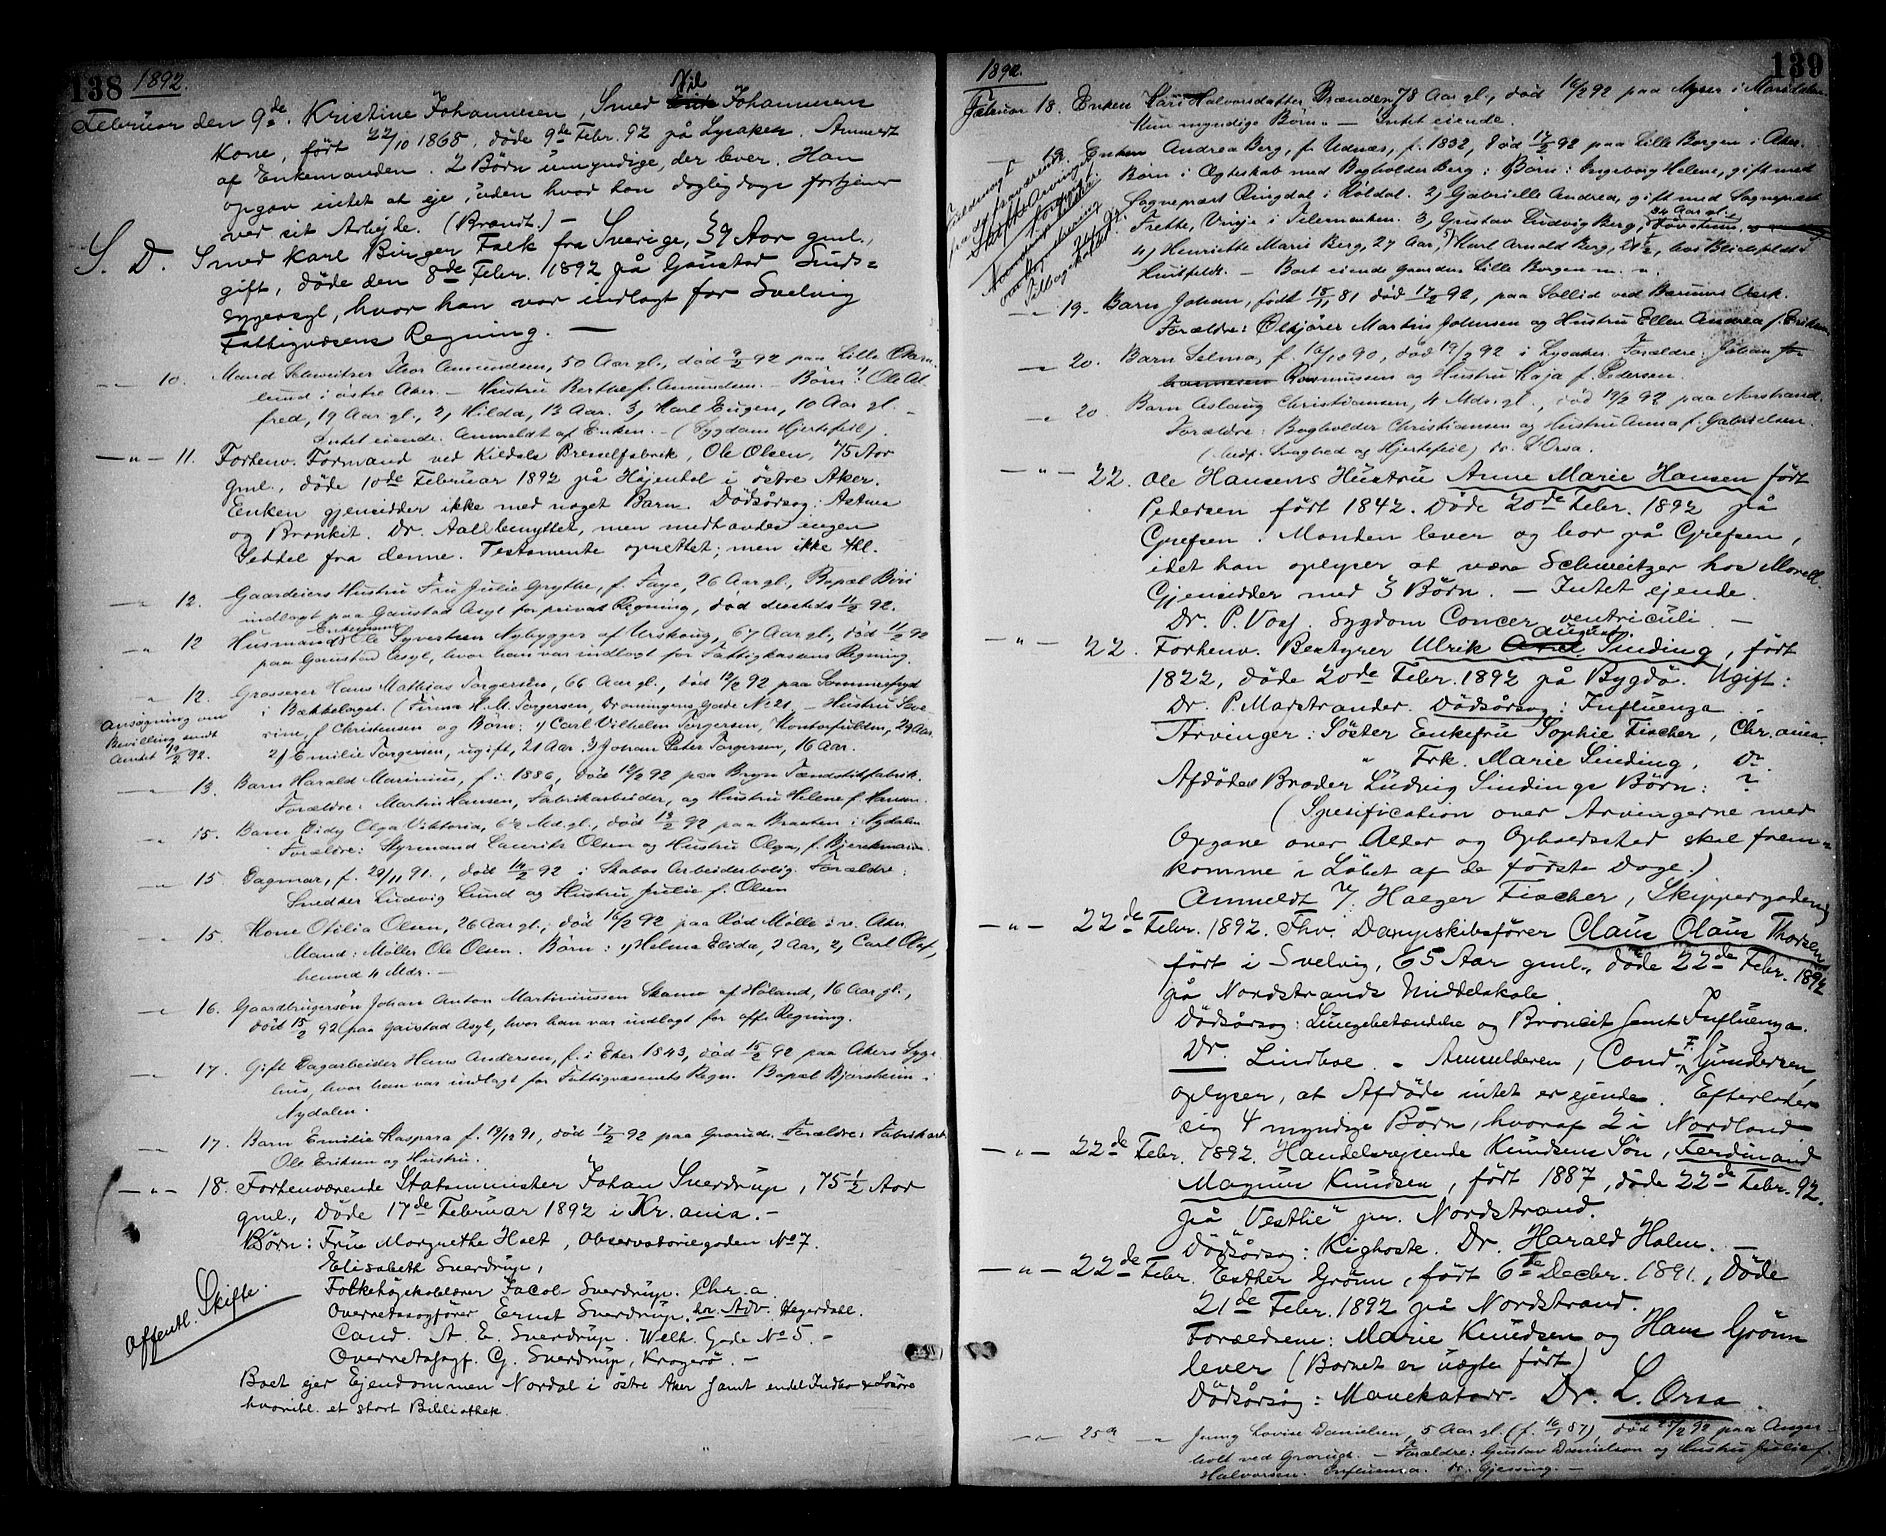 138 1892.
Februar den 9de. Kristine Johannesen, Smed Nil Johannesens
Kone, født 22/10 1865, døde 9de Febr. 92 på Lysaker. Anmeldt
af Enkemanden. 2 Børn umyndige, der lever. Han
opgav intet at eje, uden hvad han daglig dags fortjener
ved sit Arbejde. (Brandt.) —
S. D. Smed Karl Birger Falk fra Sverige, 39 Aar gml.,
gift, døde den 8de Febr. 1892 på Gaustad Sinds=
sygeasyl, hvor han var indlagt for Svelvig
Fattigvæsens Regning. —
—"— 10. Mand Schweitser Thor Amundsen, 50 Aar gl., død 9/2 92 paa Lille Aker
lund i østre Aker. — Hustru Berthe f. Amundsen. — Børn: 1) Ole Al
fred, 19 Aar gl., 2, Hilda, 13 Aar. 3, Karl Eugen, 10 Aar gl. —
Intet eiende. Anmeldt af Enken. — (Sygdom Hjertefeil).
—"— 11. Forhenv. Formand ved Kildals Brusselfabrik, Ole Olsen, 75 Aar
gml., døde 10de Februar 1892 på Højenhal i østre Aker.
Enken gjensidder ikke med noget Barn. Dødsårsag: Astma
og Bronkit. Dr. Aall benyttet, men medhavdes ingen
Seddel fra denne. Testamente oprettet; men ikke thl.
—"— 12. Gaardeiers Hustru Fru Julie Grythe, f. Faye, 26 Aar gl., Bopæl Biri
indlagt paa Gaustad Asyl for privat Regning, død dersteds 11/2 92.
—"— 12 Husmand Enkemand Ole Syvertsen Nybygger af Urskoug, 67 Aar gl., død 11/2 92
paa Gaustad Asyl, hvor han var indlagt for Fattigkassens Regning.
" 12. Grosserer Hans Mathias Torgersen, 66 Aar gl., død 12/2 92 paa Sommerfryd
i Bækkelaget. (Firma H. M. Torgersen, Dronningens Gade No 21. — Hustru Seve
rine, f Christensen og Børn: 1/ Carl Vilhelm Torgersen, Kontorfuldm, 29 Aar
2/ Emilie Torgersen, ugift, 21 Aar. 3/ Johan Peter Torgersen, 16 Aar.
Ansøgning om
Bevilling sendt
Amtet 19/2 92.
—"— 13. Barn Harald Marinius, f. i 1886, død 12/2 92 paa Bryn Tændstikfabrik.
Forældre: Martin Hansen, Fabrikarbeider, og Hustru Helene f. Hansen.
—"— 15. Barn Eidy Olga Viktoria, 6 1/2 Md. gl., død 13/2 92 paa Braaten i Nydalen
Forældre: Styrmand Laurits Olsen og Hustru Olga, f. Bjerckmann.
—"— 15 Dagmar, f. 29/11 91., død 14/2 92 i Skabos Arbeiderbolig. Forældre:
Snedker Ludvig Lund og Hustru Julie f. Olsen
—"— 15. Kone Otilia Olsen, 26 Aar gl., død 16/2 92 paa Rød Mølle i v. Aker
Mand: Møller Ole Olsen. Børn: 1/ Helma Elida, 2 Aar, 2/ Carl Olaf,
henved 4 Mdr. —
—"— 16. Gaardbrugersøn Johan Anton Martiniussen Skamo af Høland, 16 Aar gl.,
død 15/2 92 paa Gaustad Asyl, hvor han var indlagt for off. Regning.
—"— 17. Gift Dagarbeider Hans Andersen, f. i Eker 1843, død 15/2 92 paa Akers Syge
hus, hvor han var indlagt for Fattigvæsenets Regn. Bopæl Bjørsheim i
Nydalen.
—"— 17. Barn Emilie Kaspara f. 19/12 91, død 17/2 92 paa Grorud. Forældre: Fabrikarb.
Ole Eriksen og Hustru.
—"— 18. Forhenværende Statsminister Johan Sverdrup, 75 1/2 Aar
gml., døde 17de Februar 1892 i Kr.ania. —
Børn: Frue Margrethe Holt, Observatoriegaden No 7.
Elisabeth Sverdrup,
Folkehøjskolelærer Jacob Sverdrup. Chr.a.
Overretssagfører Ernst Sverdrup, hos Adv. Hegerdahl.
Cand. A. E. Sverdrup. Welh. Gade No 5. —
Overretssagf. G. Sverdrup, Kragerø. —
Offentl. Skifte.
Boet ejer Ejendommen Nordal i østre Aker samt endel Indbo & Løsøre
hvoribl. et stort Bibliothek.
139
1892.
Februar 18. Enken Kari Halvorsdatter Brænden, 78 Aar gl., død 16/2 92 paa Myser i Maridalen.
Kun myndige Børn. — Intet eiende.
—"— 19. Enken Andrea Berg, f. Udnæs, f. 1832, død 17/2 92 paa Lille Borgen i Aker.
Børn i Ægteskab med Bogholder Berg: 1) Børn: Ingeborg Helene, gift med
Sogneprest Ringdal i Røldal. 2) Gabrielle Andrea, gift med Sogneprest
Trette, Vinje i Telemarken. 3, Gustav Ludvig Berg, 34 Aar gl.,
4) Henriette Marie Berg, 27 Aar, 5) Karl Arnold Berg, 21 1/2, hos
Huitfeldt. — Boet eiende Gaarden Lille Borgen m. v.
—"— 19. Barn Johan, født 18/11 81 død 17/2 92, paa Sollid ved Bærums Værk.
Forældre: Ølkjører Martin Johnsen og Hustru Ellen Andrea f. Eriksen
—"— 20. Barn Selma, f. 16/10 90, død 19/2 92 i Lysaker. Forældre: Johan
Rasmussen og Hustru Kaja f. Pedersen.
—"— 20. Barn Aslaug Christiansen, 4 Mdr. gl., død 19/2 92 paa Norstrand.
Forældre: Bogholder Christiansen og Hustru Anna f. Gabrielsen.
(Medf. Svaghed og Hjertefeil) Dr. L'Orsa.
—"— 22. Ole Hansens Hustru Anne Marie Hansen født
Pedersen født 1842. Døde 20de Febr. 1892 på
Grefsen. Manden lever og bor på Grefsen,
idet han oplyser at være Schweitzer hos Morell.
Gjensidder med 3 Børn. — Intet ejende.
Dr. P. Voss. Sygdom Cancer ventriculi. —
—"— 22. Forhenv. Bestyrer Ulrik August Sinding, født
1822, døde 20de Febr. 1892 på Bygdø. Ugift:
Dr. P. Marstrander. Dødsårsag: Influenza.
Arvinger: Søster Enkefru Sophie Fischer, Chr.ania.
" Frk. Marie Sinding, Do.
Afdødes Broder Ludvig Sindings Børn: ?
(Spesification over Arvingerne med
Opgave over Alder og Opholdssted skal frem=
komme i Løbet af de første Dage.)
Anmeldt v/ Holger Fischer, Skippergaden 9
—"— 22de Febr. 1892. Fhv. Dampskibsfører Claus Olaus Thorsen
født i Svelvig, 65 Aar gml., døde 22de Febr. 1892
på Nordstrands Middelskole.
Dødsårsag: Lungebetændelse og Bronkit samt Influenza.
Dr. Lindboe. — Anmelderen, Cand. F. Gundersen,
oplyser, at Afdøde intet er ejende. Efterlader
sig 4 myndige Børn, hvoraf 2 i Nordland
—"— 22de Febr. 1892. Handelsrejsende Knudsens Søn, Ferdinand
Magnus Knudsen, født 1887, døde 22de Febr. 92.
på "Vestlie" pr. Nordstrand.
Dødsårsag: Kighoste. Dr. Harald Holm. —
—"— 22de Febr. Esther Grønn, født 6te Decbr. 1891., Døde
21de Febr. 1892 på Nordstrand.
Forældrene: Marie Knudsen og Hans Grønn
lever (Barnet er uægte født)
Dødsårsag: Mavekatarr. Dr. L. Orsa.
—"— 25de " Jenny Lovise Danielsen, 5 Aar gl (f. 16/1 87), død 25/2 92 paa Anger
holt ved Grorud. — Forældre: Gustav Danielson og Hustru Julie f.
Halvorsen. Influenza. Dr. Gjessing. —